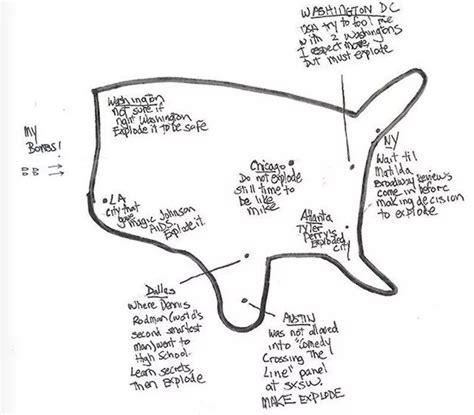 WASHINGTON DC
USA try to fool me
with 2 Washingtons
I respect move,
but must explode
Washington
not sure if
right Washington
Explode it to be safe
My
Bombs!
NY
Wait til
Matilda
Broadway Reviews
come in before
making decision
to explode
Chicago
Do not explode
still time to
be like
mike
LA
city that
gave
Magic Johnson
AIDS.
Explode it
Atlanta
Tyler
Perry's
Exploded
city
Dallas
Where Dennis
Rodman (world's
second smartest
man) went to
High School.
Learn secrets,
Then Explode
AUSTIN
Was not allowed
into "Comedy
Crossing The
Line" panel
at SXSW.
MAKE EXPLODE